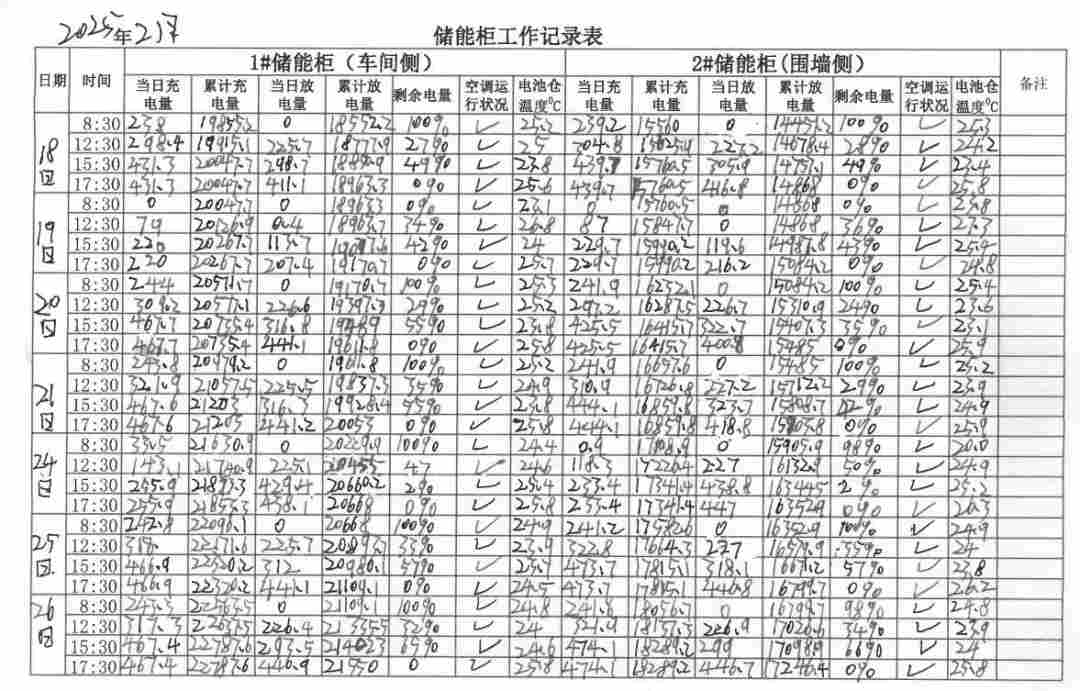 2025年2月
储能柜工作记录表
日期 时间 1#储能柜（车间侧） 2#储能柜(围墙侧） 备注
当日充电量 累计充电量 当日放电量 累计放电量 剩余电量 空调运行状况 电池仓温度⁰C 当日充电量 累计充电量 当日放电量 累计放电量 剩余电量 空调运行状况 电池仓温度⁰C
18日
8:30 238 19855.2 0 18552.2 100% ✓ 25.3 239.2 15560 0 14451.2 100% ✓ 25.3
12:30 298.4 19915.1 225.7 18777.9 27% ✓ 25 304.8 15625.9 227.2 14678.4 28% ✓ 24.2
15:30 431.3 20047.7 298.7 49% ✓ 23.8 439.7 15760.5 305.9 14757.1 49% ✓ 23.4
17:30 431.3 20047.7 411.1 18963.3 0% ✓ 25.6 439.7 15760.5 416.8 14868 0% ✓ 25.8
19日
8:30 0 20047.7 0 18963.3 0% ✓ 23.1 0 15760.5 0 14868 0% ✓ 23.8
12:30 79 20126.9 0.4 18963.7 34% ✓ 26.8 87 15847.7 0 14868 36% ✓ 27.3
15:30 220 20267.7 113.7 42% ✓ 24 229.7 15990.2 119.6 14987.8 43% ✓ 25.4
17:30 220 20267.7 207.4 19170.7 0% ✓ 25.7 229.7 15990.2 216.2 15084.2 0% ✓ 24.8
20日
8:30 244 20511.7 0 19170.7 100% ✓ 25.3 241.9 16232.1 0 15084.2 100% ✓ 25.4
12:30 309.2 20577.1 226.6 19397.3 29% ✓ 25.2 297.2 16287.5 226.7 15310.9 24% ✓ 23.6
15:30 467.7 20735.4 316.8 55% ✓ 23.8 425.5 16415.7 322.7 15407.3 35% ✓ 23.1
17:30 467.7 20735.4 441.1 19611.8 0% ✓ 25.8 425.5 16415.7 400.8 15485 0% ✓ 25.9
21日
8:30 243.8 20979.2 0 19611.8 100% ✓ 25.2 241.9 16657.6 0 15485 100% ✓ 25.2
12:30 321.9 21057.5 225.5 19837.3 35% ✓ 24.9 310.9 16726.8 227.2 15712.2 29% ✓ 23.9
15:30 467.6 21203 316.3 19928.4 55% ✓ 23.8 444.1 16859.8 323.7 15808.7 42% ✓ 24.9
17:30 467.6 21203 441.2 20053 0% ✓ 25.8 444.1 16859.8 418.8 0% ✓ 25.9
24日
8:30 33.5 21630.9 0 20229.9 100% ✓ 24.4 0.9 17108.9 0 15905.9 98% ✓ 20.0
12:30 143.1 21740.9 225.1 20455 47 ✓ 24.6 118.3 17226.4 227 16132.9 50% ✓ 24.9
15:30 255.9 21853.3 429.4 20660.2 2% ✓ 25.4 233.4 17341.4 438.8 16344.5 2% ✓ 25.2
17:30 255.9 21853.3 438.1 20668 0% ✓ 25.8 233.4 17341.4 447 16352.9 0% ✓ 26.3
25日
8:30 242.8 22096.1 0 20668 100% ✓ 24.9 241.2 17582.6 0 16352.9 100% ✓ 24.9
12:30 318. 22171.6 225.7 20893.7 33% ✓ 23.9 322.8 17664.3 227 16579.9 35% ✓ 24
15:30 466.9 22320.2 312 20980.1 57% ✓ 23.7 473.7 17815.1 318.1 16671.2 57% ✓ 23.8
17:30 466.9 22320.2 441.1 21109.1 0% ✓ 24.5 473.7 17815.1 446.8 16799.7 0% ✓ 26.2
26日
8:30 245.3 22565.5 0 21109.1 100% ✓ 24.8 241.6 18056.7 0 16799.7 98% ✓ 24.8
12:30 317.3 22637.5 226.4 21335.5 32% ✓ 24 321.9 18137.3 226.9 17026.6 34% ✓ 23.9
15:30 467.4 22787.6 293.5 21402.3 65% ✓ 24.6 474.1 18289.2 299 17098.9 66% ✓ 24
17:30 467.4 22787.6 440.9 21550 0 ✓ 25.8 474.1 18289.2 446.7 17246.4 0% ✓ 25.8